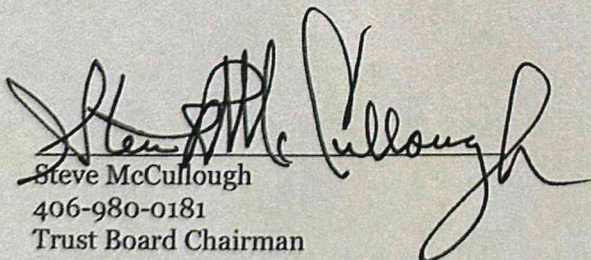 Steve McCullough
Steve McCullough
406-980-0181
Trust Board Chairman